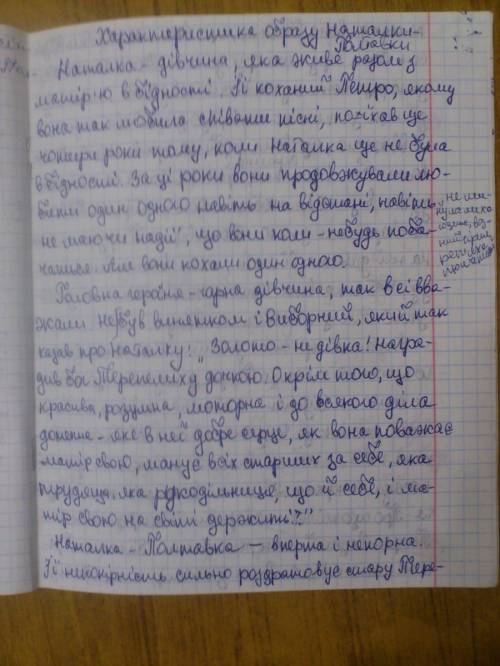 Характеристика образу Наталки-
Полтавки
Наталка - дівчина, яка живе разом з
матір'ю в бідності. Її коханий Петро, якому
вона так любила співати пісні, поїхав ще
чотири роки тому, коли Наталка ще не була
в бідності. За ці роки вони продовжували лю-
бити один одного навіть на відстані, навіть
не маючи надії, що вони коли-небудь поба-
чаться. Але вони кохали один одного.
Головна героїня - гарна дівчина, так всі вва-
жали. Не був винятком і Виборний, який так
казав про Наталку: „Золото - не дівка! Награ-
див бог Терпелиху дочкою. Окрім того, що
красива, розумна, моторна і до всякого діла
дотепна - яке в неї добре серце, як вона поважає
матір свою, шанує всіх старших за себе, яка
трудяща, яка рукодільниця, що й себе, і ма-
тір свою на світі держить!"
Наталка - Полтавка - вперта і непокірна.
Її непокірність сильно роздратовує стару Тере-